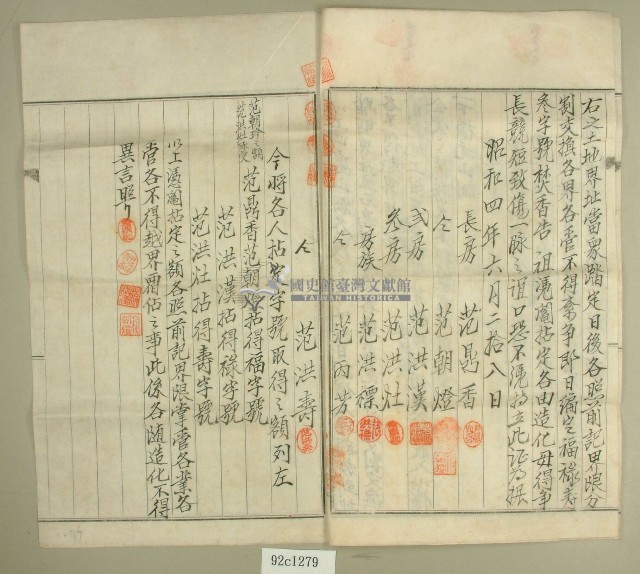 右之土地界址當眾踏定日後各照前記界限分
割交換各界各管不得爭爭即日編定福祿壽
叁字號焚香告祖憑鬮拈定各由造化毋得爭
長競短致傷一脉之誼口恐不憑特立此証為據
昭和四年六月二拾八日
長房 范鼎香
仝 范朝燈
弍房 范洪漢
叁房 范洪灶
房族 范洪標
仝 范丙芳
仝 范洪壽
今將各人拈定字號取得之額列左
范鼎香范朝 拈得福字號
范朝 之額
范洪漢拈得祿字號
范洪灶拈得壽字號
以上憑鬮拈定之額各照前記界限掌管各業各
管各不得越界霸佔之事此係各随造化不得
異言照
國史館臺灣文獻館
TAIWAN HISTORICA
92c1279